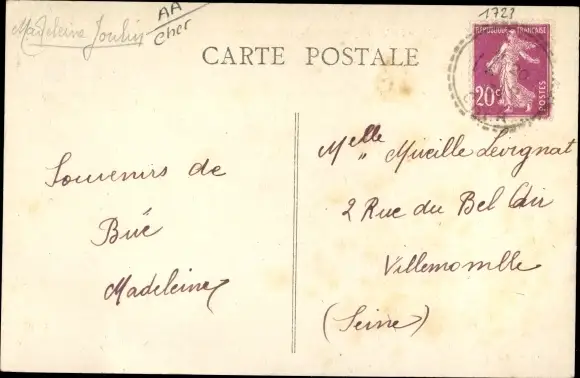 Madeleine Joulin
AA
Cher
1723
CARTE POSTALE
REPUBLIQUE FRANÇAISE
20c
POSTES
Souvenirs de
Bué
Madeleine
Melle Mireille Levignat
2 Rue du Bel Air
Villemomble
(Seine)